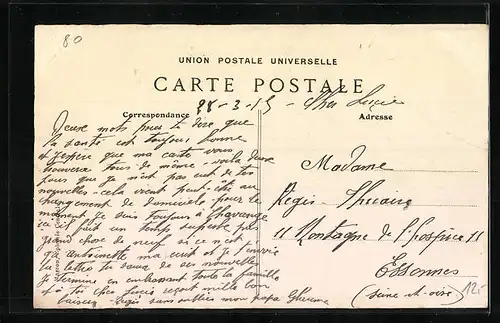 80
UNION POSTALE UNIVERSELLE
CARTE POSTALE
Correspondance
28-3-15 -
Adresse
Deux mots pour te dire que
la santé est toujours bonne
et j'espere que ma carte vous
trouvera tous de même - voila deux
jours que je n'ait pas eut de tes
nouvelles - cela vient peut-être au
changement de domicile pour le
moment je suis toujours a
ici il fait un temps superbe pas
grand chose de neuf si ce n'est
qu'a antoinette ma ecrit et je t'envoie
la lettre tu saura de ses nouvelles
je termine en embrassant toute la famille
et a toi cher recoit mille bon
baiser - Régis sans oublier mon papa
Madame
Régis
11 Montagne de l'hospice 11
Essonnes
(Seine et oise)
12.-